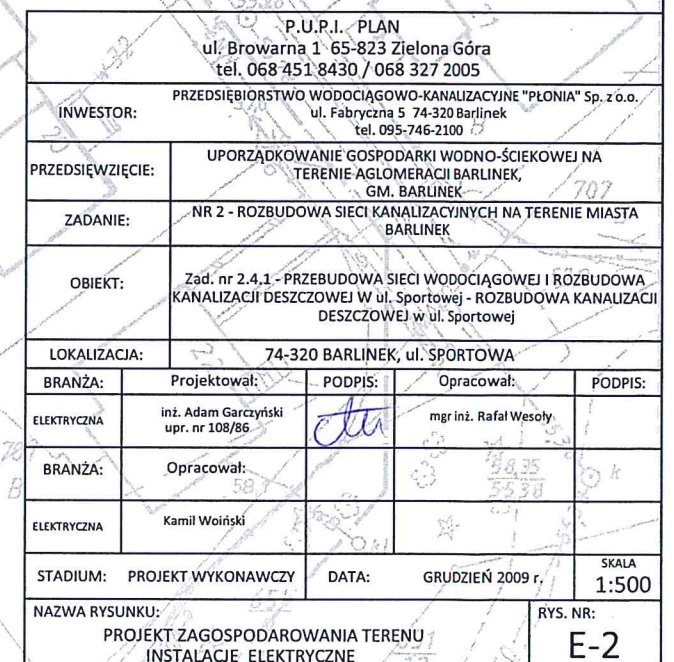 P.U.P.I. PLAN
ul. Browarna 1 65-823 Zielona Góra
tel. 068 451 8430 / 068 327 2005
INWESTOR:
PRZEDSIĘBIORSTWO WODOCIĄGOWO-KANALIZACYJNE "PŁONIA" Sp. z o.o.
ul. Fabryczna 5 74-320 Barlinek
tel. 095-746-2100
PRZEDSIĘWZIĘCIE:
UPORZĄDKOWANIE GOSPODARKI WODNO-ŚCIEKOWEJ NA
TERENIE AGLOMERACJI BARLINEK,
GM. BARLINEK
707
ZADANIE:
NR 2 - ROZBUDOWA SIECI KANALIZACYJNYCH NA TERENIE MIASTA
BARLINEK
OBIEKT:
Zad. nr 2.4.1 - PRZEBUDOWA SIECI WODOCIĄGOWEJ I ROZBUDOWA
KANALIZACJI DESZCZOWEJ W ul. Sportowej - ROZBUDOWA KANALIZACJI
DESZCZOWEJ w ul. Sportowej
LOKALIZACJA: 74-320 BARLINEK, ul. SPORTOWA
BRANŻA: Projektował: PODPIS: Opracował: PODPIS:
ELEKTRYCZNA
inż. Adam Garczyński
upr. nr 108/86
mgr inż. Rafał Wesoły
BRANŻA: Opracował:
58,35
55,38
k
ELEKTRYCZNA Kamil Woiński
STADIUM: PROJEKT WYKONAWCZY DATA: GRUDZIEŃ 2009 r.
SKALA
1:500
NAZWA RYSUNKU:
PROJEKT ZAGOSPODAROWANIA TERENU
INSTALACJE ELEKTRYCZNE
RYS. NR:
E-2